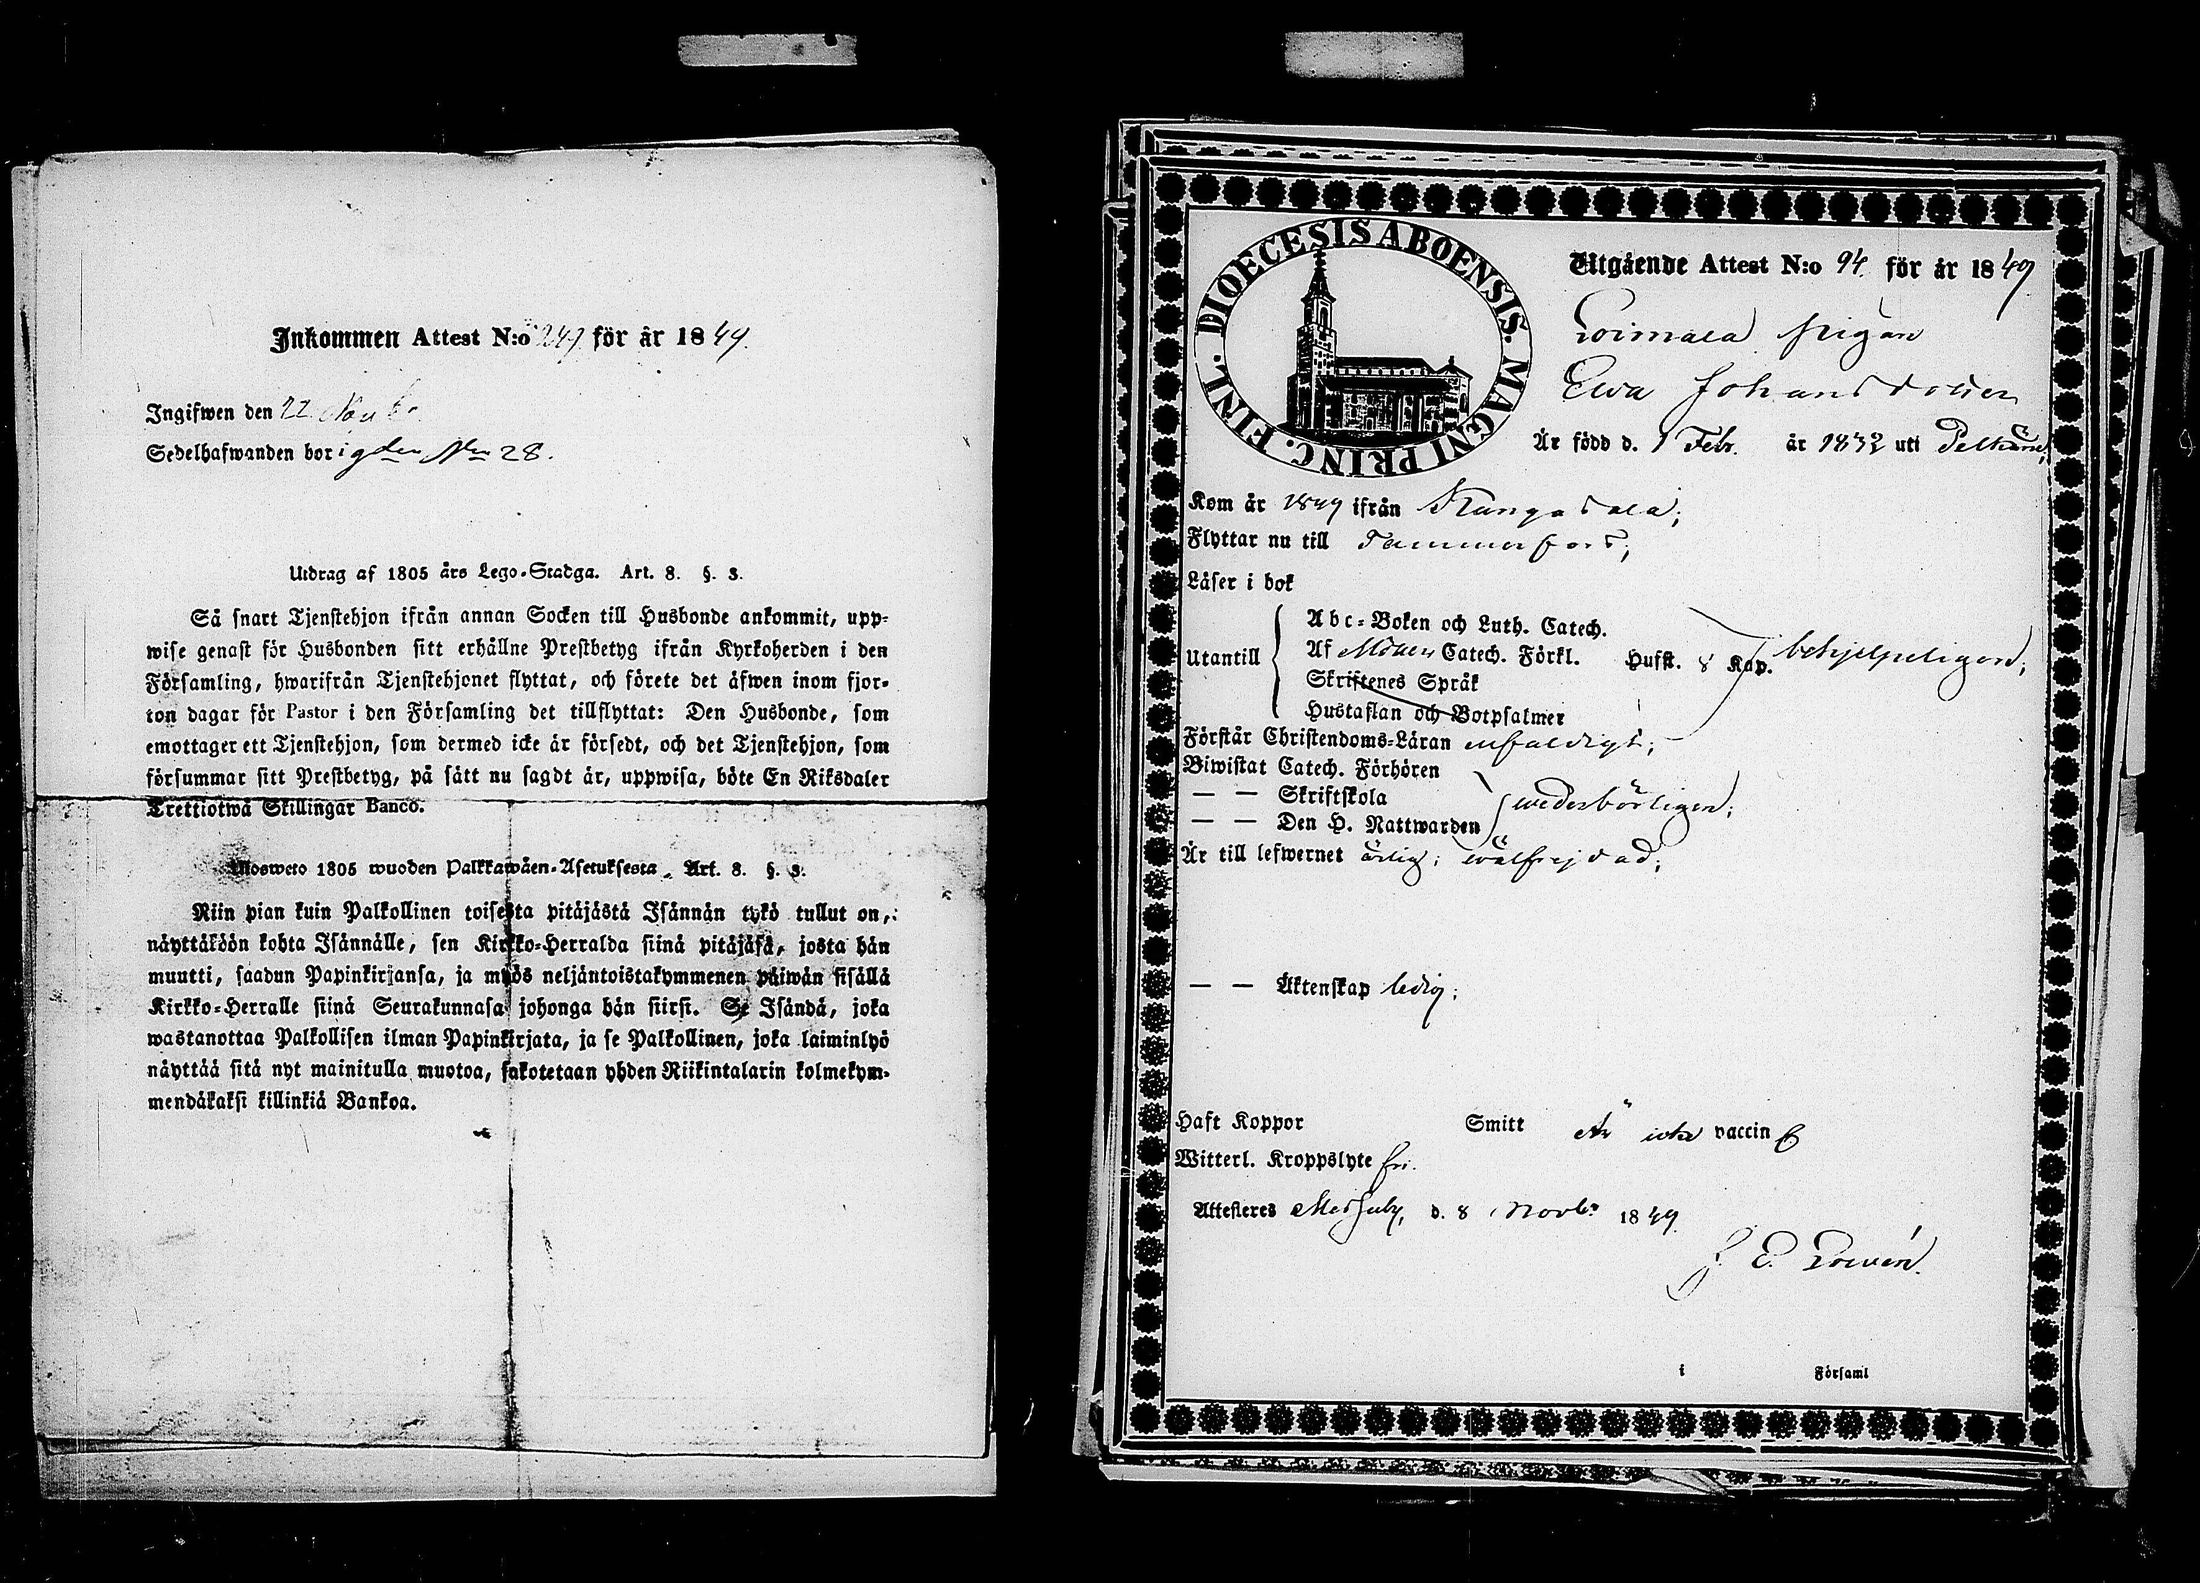 Inkommen Attest N:o 247 för år 1849.
Ingifwen den 22 Novbr
Sedelhafwanden bor i gden N:o 28.
Utdrag af 1805 års Lego-Stadga. Art. 8. §. 3.
Så snart Tjenstehjon ifrån annan Socken till Husbonde ankommit, upp-
wise genast för Husbonden sitt erhållne Prestbetyg ifrån Kyrkoherden i den
Församling, hwarifrån Tjenstehjonet flyttat, och förete det äfwen inom fjor-
ton dagar för Pastor i den Församling det tillflyttat: Den Husbonde, som
emottager ett Tjenstehjon, som dermed icke är försedt, och det Tjenstehjon, som
försummar sitt Prestbetyg, på sätt nu sagdt är, uppwisa, böte En Riksdaler
Trettiotwå Skillingar Banco.
Ulosweto 1805 wuoden Palkkawäen-Asetuksesta. Art. 8. §. 3.
Niin pian kuin Palkollinen toisesta pitäjästä Isännän tykö tullut on,
näyttäköön kohta Isännälle, sen Kirkko-Herralda siinä pitäjäsä, josta hän
muutti, saadun Papinkirjansa, ja myös neljäntoistakymmenen päiwän sisällä
Kirkko-Herralle siinä Seurakunnasa johonga hän siirsi. Se Isändä, joka
wastanottaa Palkollisen ilman Papinkirjata, ja se Palkollinen, joka laiminlyö
näyttää sitä nyt mainitulla muotoa, sakotetaan yhden Riikintalarin kolmekym-
mendäkaksi killinkiä Bankoa.
DIOECESIS ABOENSIS. MAGNI PRINC. FINL.
Utgående Attest N:o 94. för år 1849
Loimala pigan
Ewa Johansdotter
Är född d. 1 Febr. år 1832 uti Pelkäne;
Kom år 1849 ifrån Kangasala;
Flyttar nu till Tammerfors;
Läser i bok
Utantill
Abc-Boken och Luth. Catech.
Af Möllers Catech. Förkl. Husst. 8 Kap. behjelpeligen;
Skriftenes Språk
Hustaflan och Botpsalmer
Förstår Christendoms-Läran enfaldigt;
Biwistat Catech. Förhören
— — Skriftskola
— — Den H. Nattwarden wederbörligen;
Är till lefwernet ärlig; wälfrejdad;
— — Äktenskap ledig;
Haft Koppor Smitt Är icke vaccin
Witterl. Kroppslyte fri.
Attesteres Messuby, d. 8 Novbr 1849.
i Församl